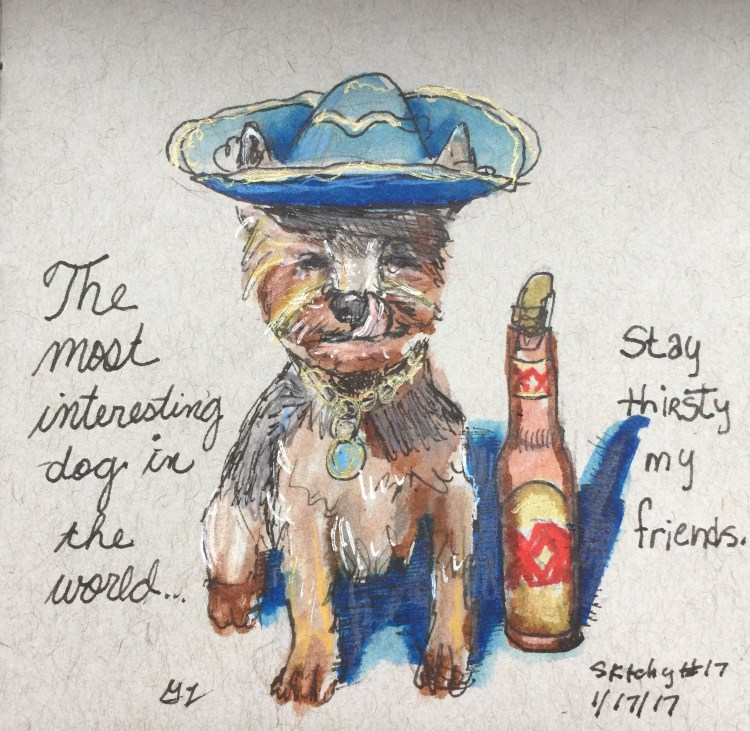 The
most
interesting
dog in
the
world...
Stay
thirsty
my
friends.
Sktchy #17
1/17/17